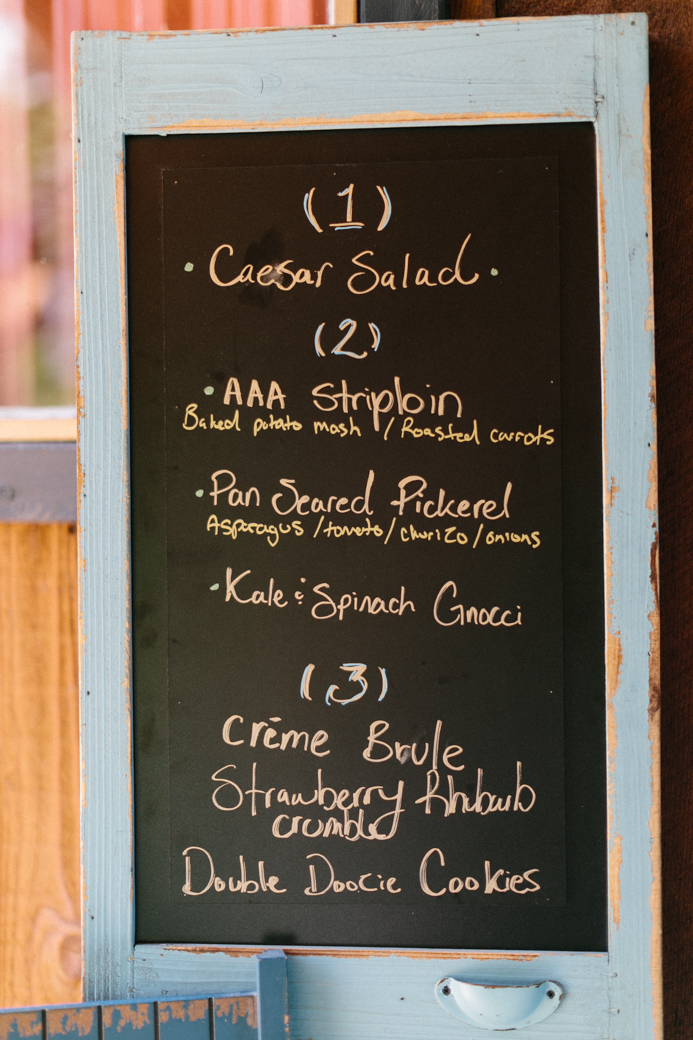 (1)
• Caesar Salad •
(2)
• AAA Striploin
Baked potato mash / Roasted carrots
• Pan Seared Pickerel
Asparagus / tomato / churizo / onions
• Kale & Spinach Gnocci
(3)
Crēme Brule
Strawberry Rhubarb
crumble
Double Doozie Cookies